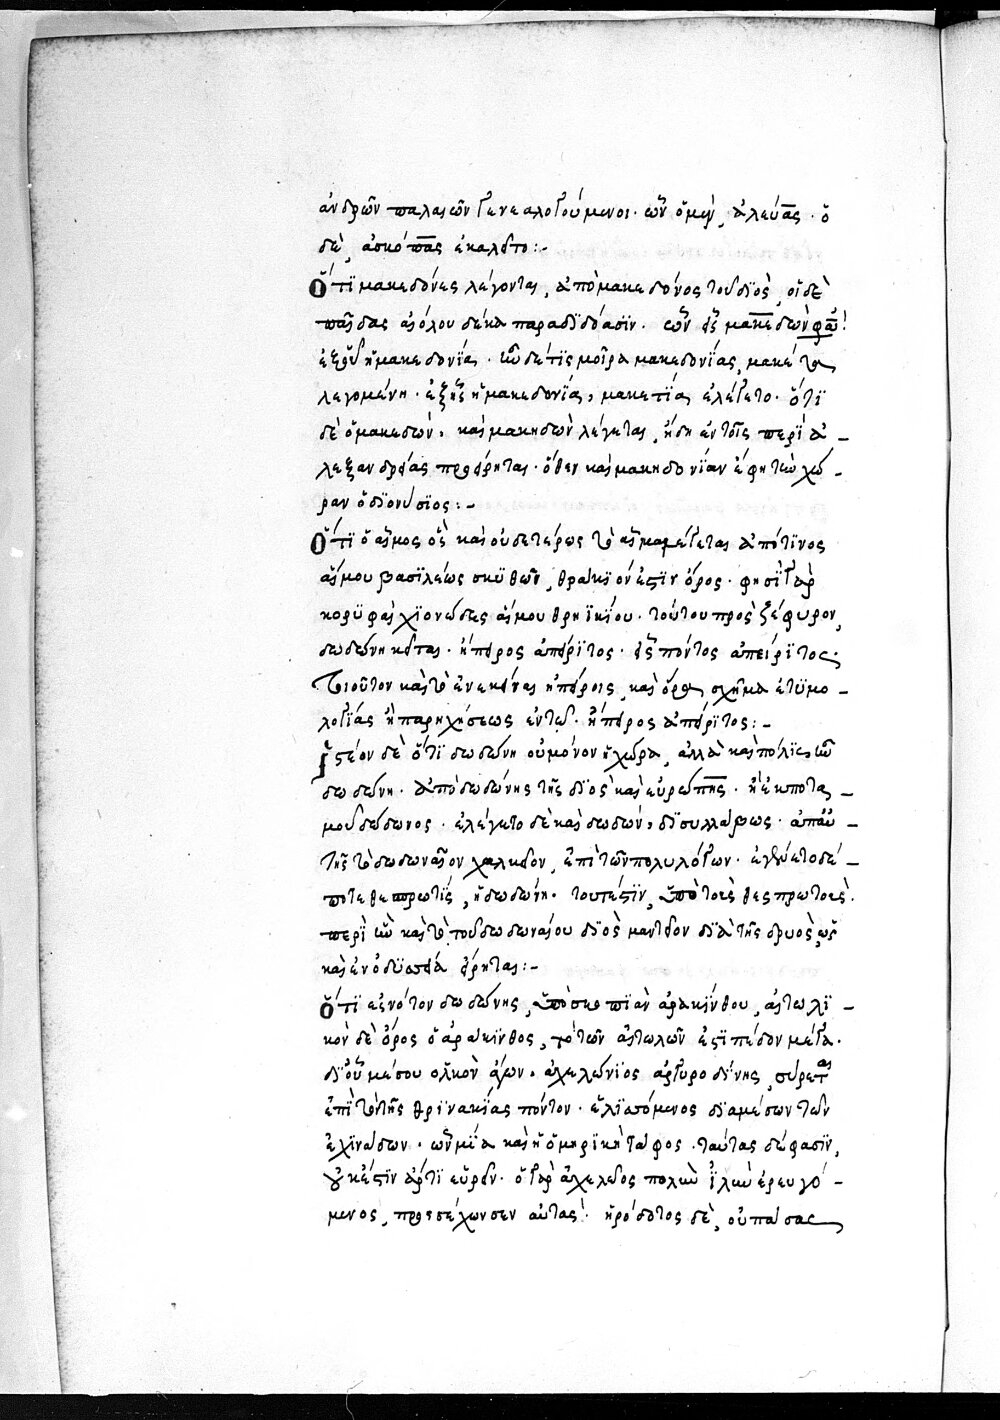 ἀνδρῶν παλαιῶν γενεαλογούμενοι· ὧν ὁ μὲν, ἀλεύας· ὁ
δὲ, ἀσκόπας ἐκαλεῖτο:-
Ὅτι μακεδόνες λέγονται, ἀπὸ μακεδόνος τοῦ διὸς, οἱ δὲ
παῖδας αἰόλου δέκα παραδιδόασιν. ὧν εἷς μακεδὼν φασὶ
ἐξ οὗ ἡ μακεδονία· ὅτι δέ τις μοῖρα μακεδονίας, μακέτα
λεγομένη· ἐξ ἧς ἡ μακεδονία, μακετία ἐλέγετο· ὅτι
δὲ ὁ μακεδὼν, καὶ μακηδὼν λέγεται, ἤδη ἐν τοῖς περὶ ἀ-
λεξανδρείας προείρηται· ὅθεν καὶ μακηδονίαν ἔφη τὴν χώ-
ραν ὁ διονύσιος:-
Ὅτι ὁ αἷμος ὃς καὶ οὐδετέρως τὸ αἷμα λέγεται ἀπό τινος
αἵμου βασιλέως σκυθῶν, θράκιόν ἐστιν ὄρος· φησὶ γὰρ
κορυφαὶ χιονώδεις αἵμου θρηϊκίου· τούτου πρὸς ζέφυρον,
δωδώνη κεῖται· ἤπειρος ἀπείριτος· εἷς πόντος ἀπείριτος·
τοιοῦτον καὶ τὸ ἐνεκείνας ἠπείροις, καὶ ὅρα σχῆμα ἐτυμο-
λογίας ἢ παρηχήσεως ἐν τῷ· ἤπειρος ἀπείριτος:-
Ἰστέον δὲ ὅτι δωδώνη οὐ μόνον ἡ χώρα, ἀλλὰ καὶ πόλις ἐν
δωδώνῃ· ἀπὸ δωδώνης τῆς διὸς καὶ εὐρώπης· ἢ ἐκ ποτα-
μοῦ δώδωνος· ἐλέγετο δὲ καὶ δωδών, δισυλλάβως· ἀπ' αὐ-
τῆς τὸ δωδωναῖον χαλκεῖον, ἐπὶ τῶν πολυλόγων· ἐγένετο δέ
ποτε θεσπρωτὶς, ἡ δωδώνη· τουτέστιν, ὑπὸ τοὺς θεσπρωτούς·
περὶ ὧν καὶ τὸ τοῦ δωδωναίου διὸς μαντεῖον διὰ τῆς δρυὸς, ὡς
καὶ ἐν ὀδυσσείᾳ εἴρηται:-
Ὅτι ἐξ νότον δωδώνης, ὑπὸ σκοπιὰν ἀρακίνθου, αἰτωλι-
κὸν δὲ ὄρος ὁ ἀράκινθος, τὸ τῶν αἰτωλῶν ἐστὶ πέδον μέγα·
δι' οὗ μέσου ὁλκὸν ἄγων, ἀχελώϊος ἀργυροδίνης, σύρεται
ἐπὶ τὸν τῆς θρινακίας πόντον· ἑλισσόμενος διὰ μέσων τῶν
ἐχινάδων· ὧν μία καὶ ἡ ὁμηρικὴ τάφος· ταύτας δέ φασιν,
οὐκ ἔστιν ἄρτι εὑρεῖν· ὁ γὰρ ἀχελῷος πολλὴν ἰλὺν ἐρευγό-
μενος, προσέχωσεν αὐτάς· ἡρόδοτος δὲ, οὐ πάσας